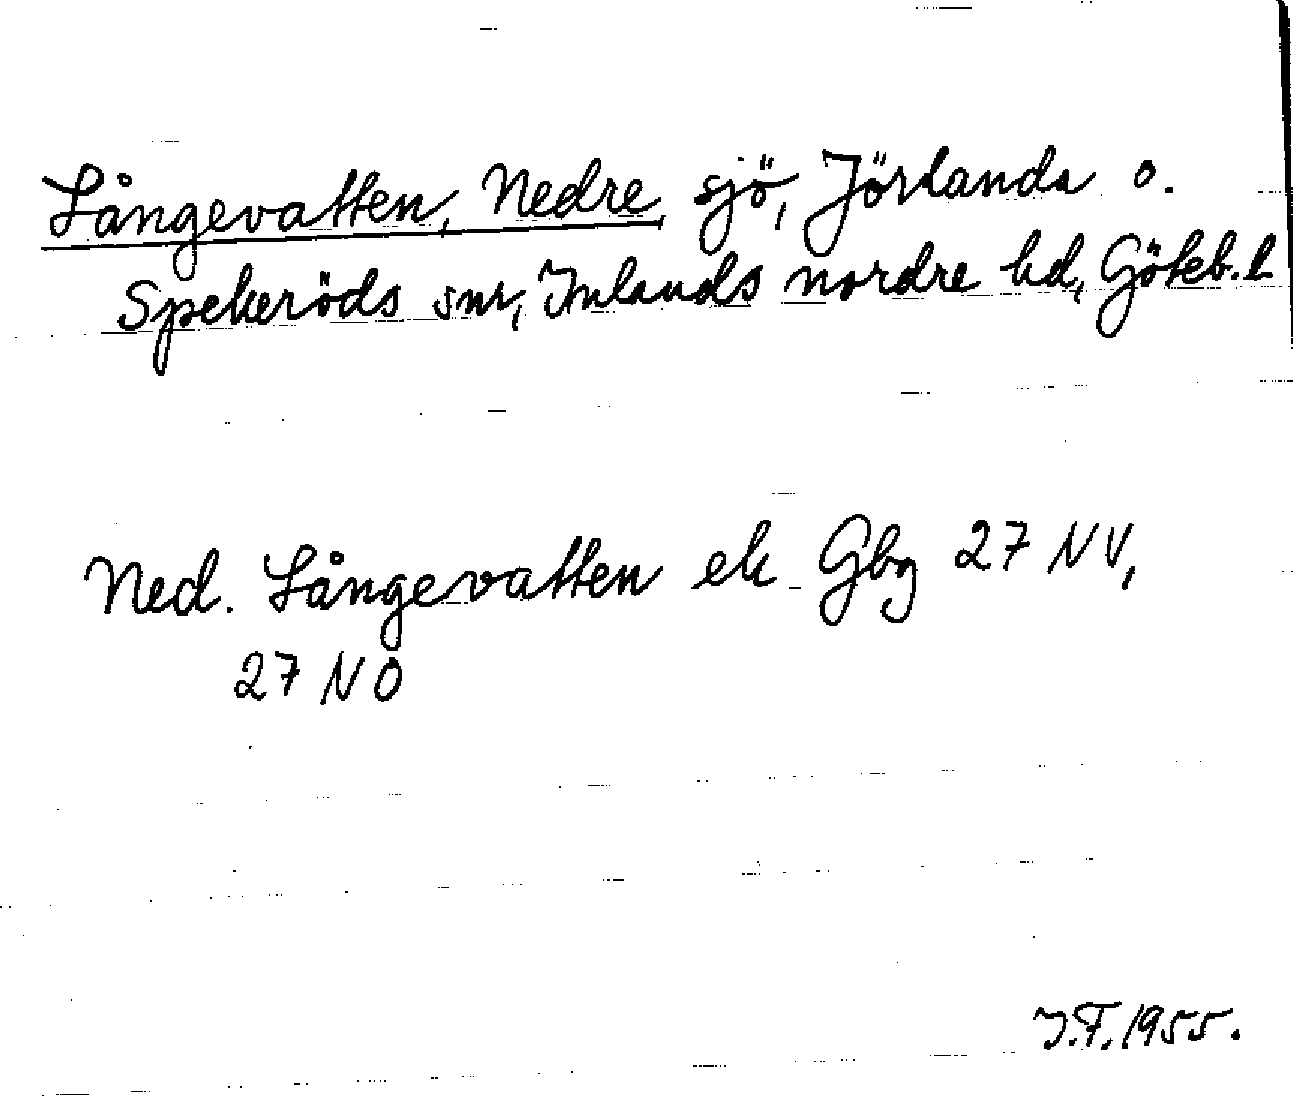 Långevatten, Nedre, sjö, Jörlanda o.
Spekeröds snr, Inlands nordre hd, Göteb. l
Ned. Långevatten ek Gbg 27 NV,
27 NO
J.F. 1955.